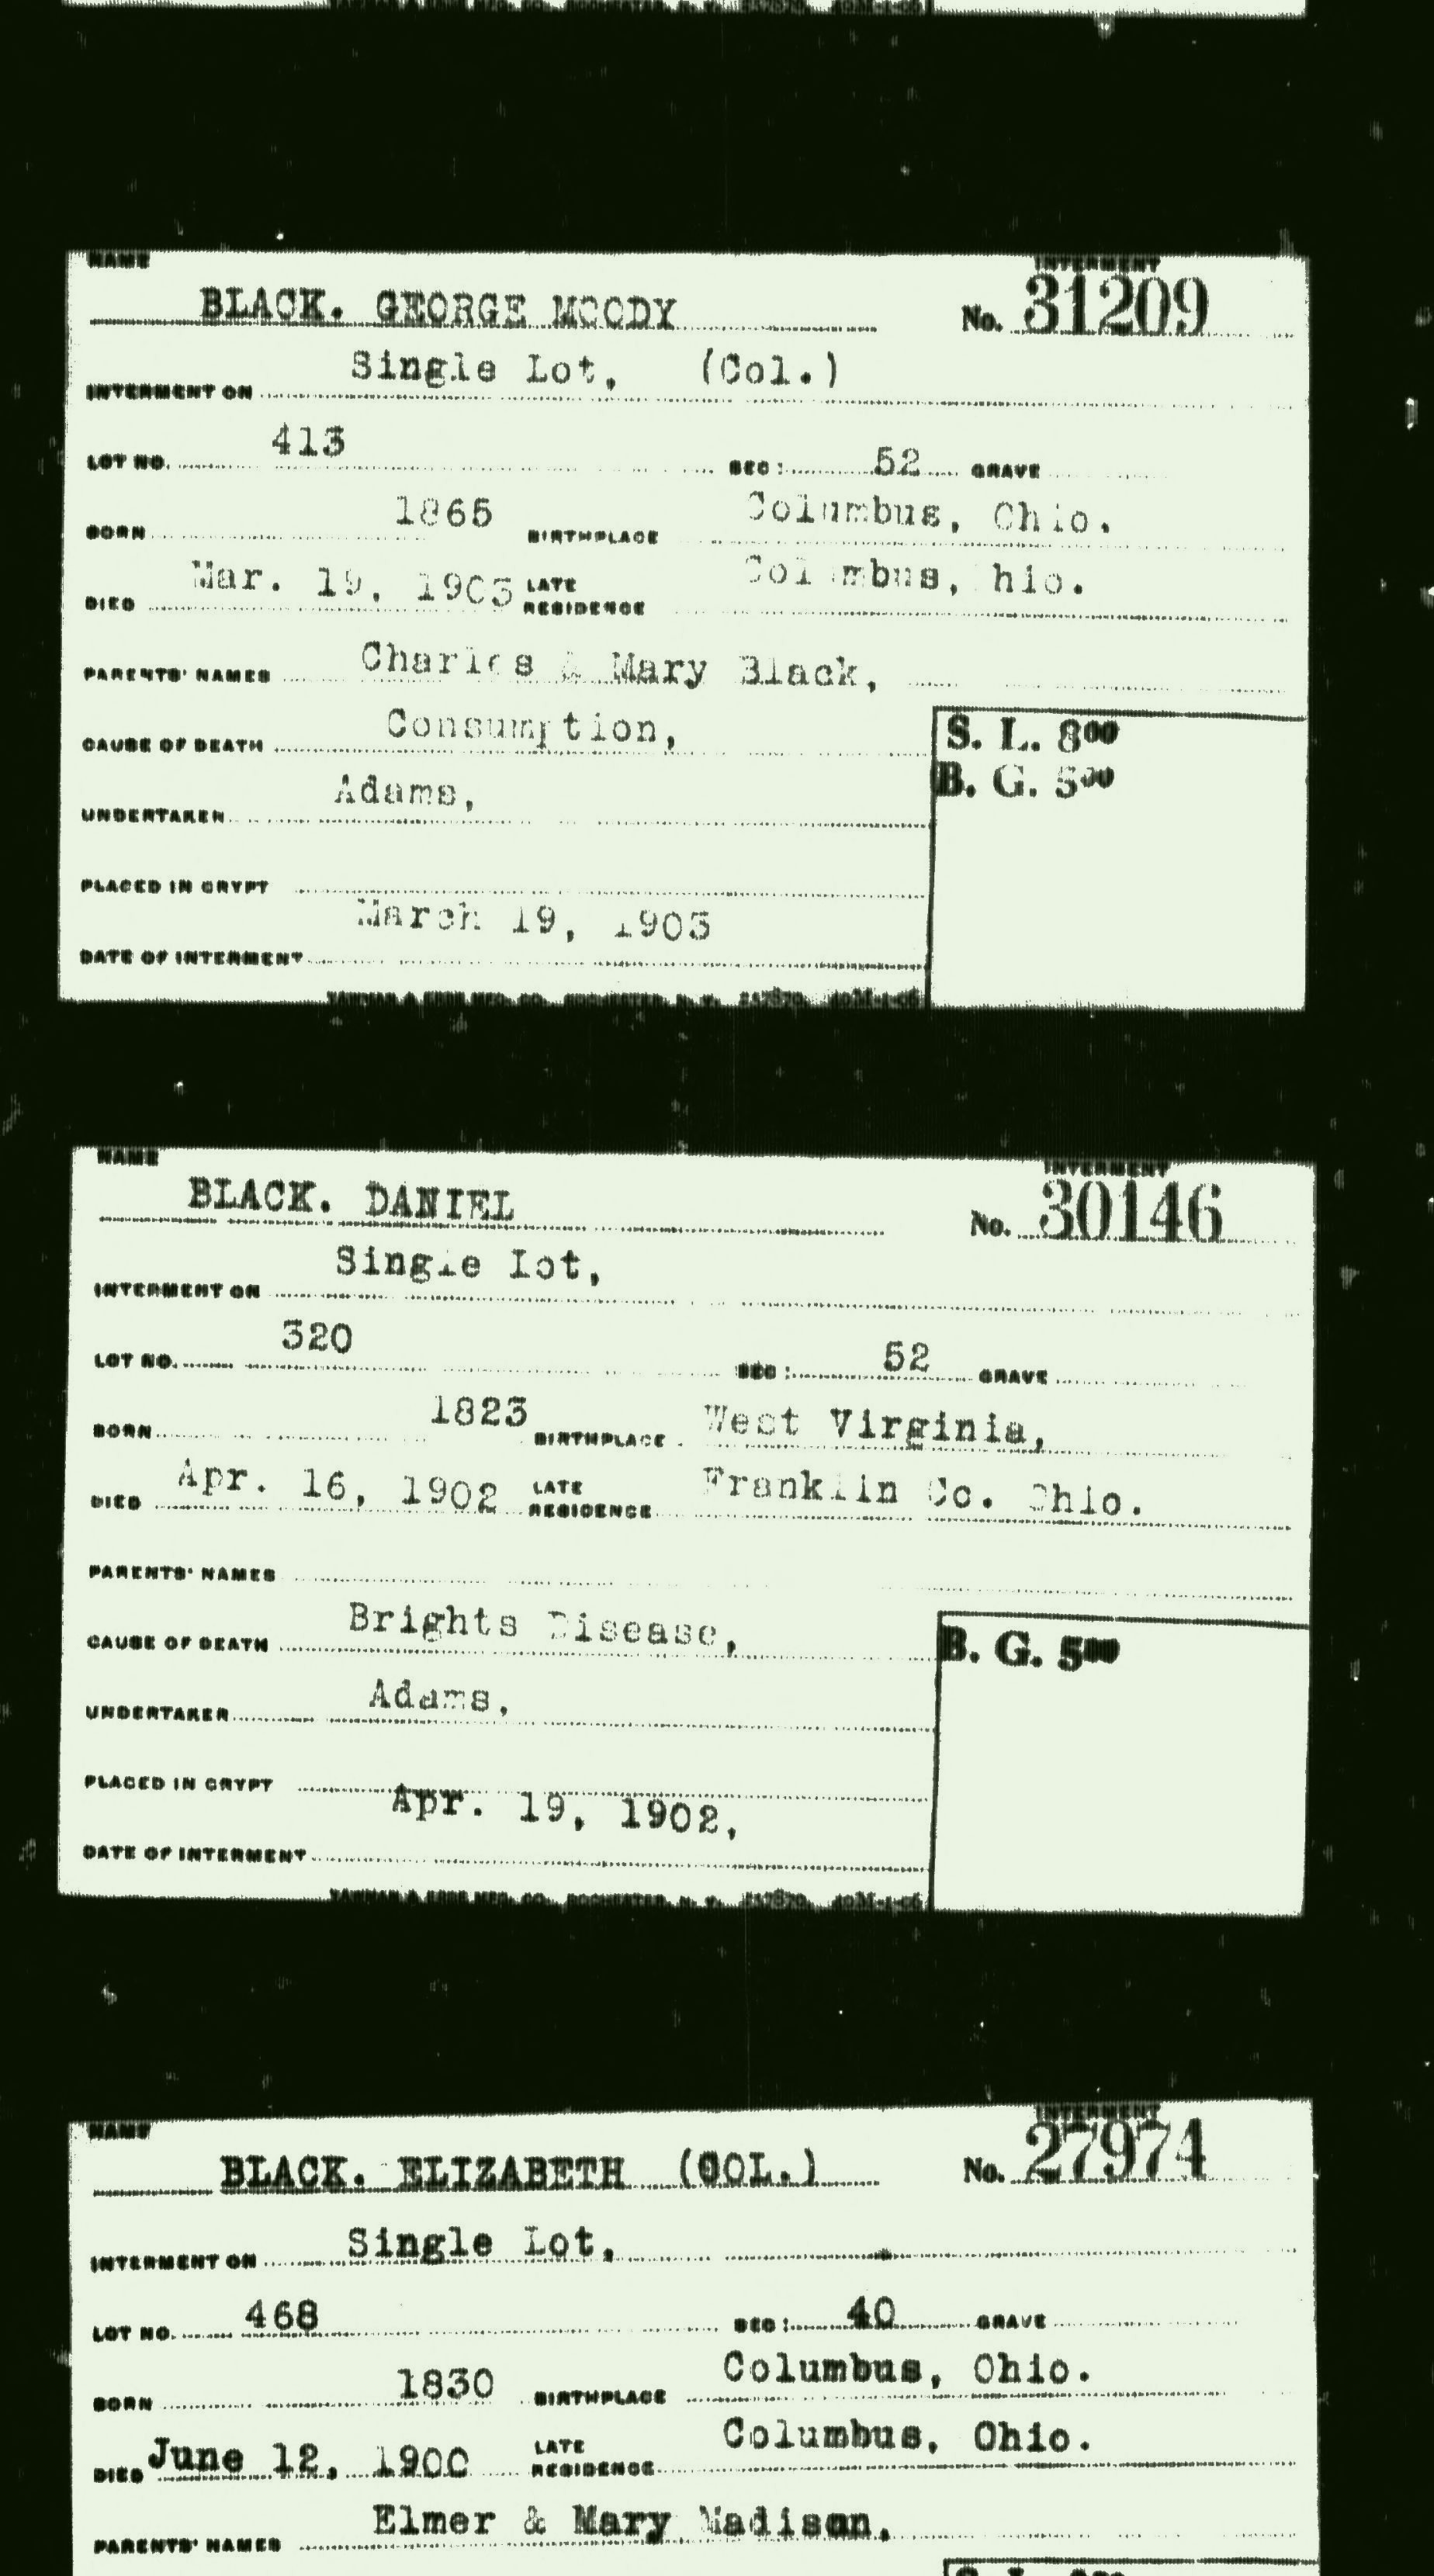 NAME INTERMENT
BLACK. GEORGE MOODY No. 31209
INTERMENT ON Single Lot, (Col.)
LOT NO. 413 SEC: 52 GRAVE
BORN 1865 BIRTHPLACE Columbus, Ohio.
DIED Mar. 19, 1903 LATE RESIDENCE Columbus, Ohio.
PARENTS' NAMES Charles & Mary Black,
CAUSE OF DEATH Consumption,
S. L. 800
B. G. 500
UNDERTAKER Adams,
PLACED IN CRYPT
DATE OF INTERMENT March 19, 1903
YAWMAN & ERBE MFG. CO. ROCHESTER, N. Y.
NAME INTERMENT
BLACK. DANIEL No. 30146
INTERMENT ON Single Lot,
LOT NO. 320 SEC: 52 GRAVE
BORN 1823 BIRTHPLACE West Virginia,
DIED Apr. 16, 1902 LATE RESIDENCE Franklin Co. Ohio.
PARENTS' NAMES
CAUSE OF DEATH Brights Disease,
B. G. 500
UNDERTAKER Adams,
PLACED IN CRYPT
DATE OF INTERMENT Apr. 19, 1902,
YAWMAN & ERBE MFG. CO. ROCHESTER, N. Y.
NAME INTERMENT
BLACK. ELIZABETH (COL.) No. 27974
INTERMENT ON Single Lot,
LOT NO. 468 SEC: 40 GRAVE
BORN 1830 BIRTHPLACE Columbus, Ohio.
DIED June 12, 1900 LATE RESIDENCE Columbus, Ohio.
PARENTS' NAMES Elmer & Mary Madison,